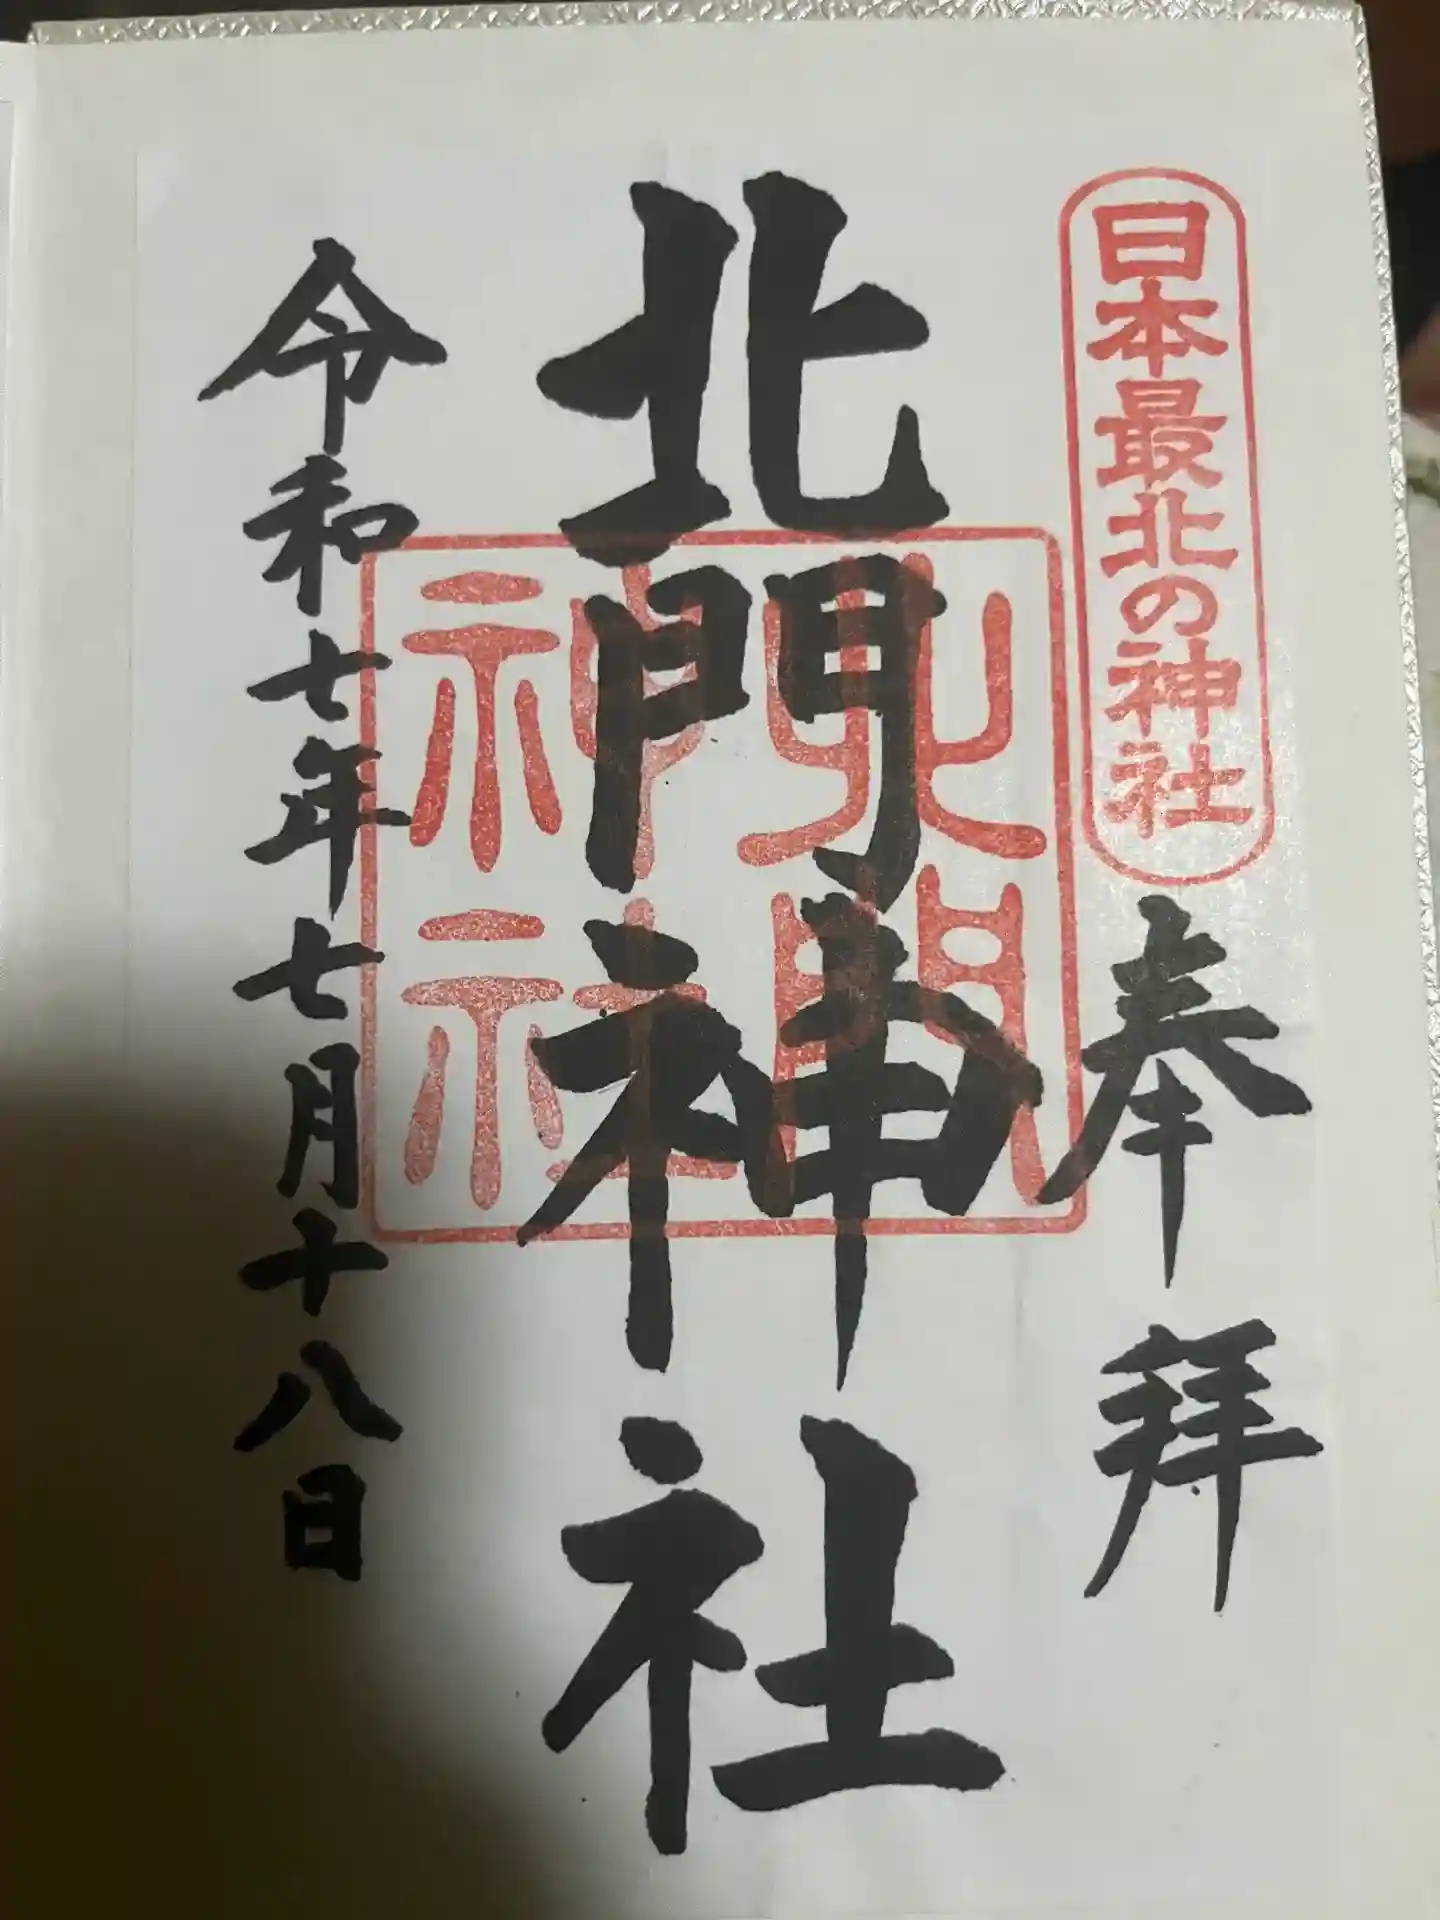 日本最北の神社
奉拝
北門神社
北門
神社
令和七年七月十八日